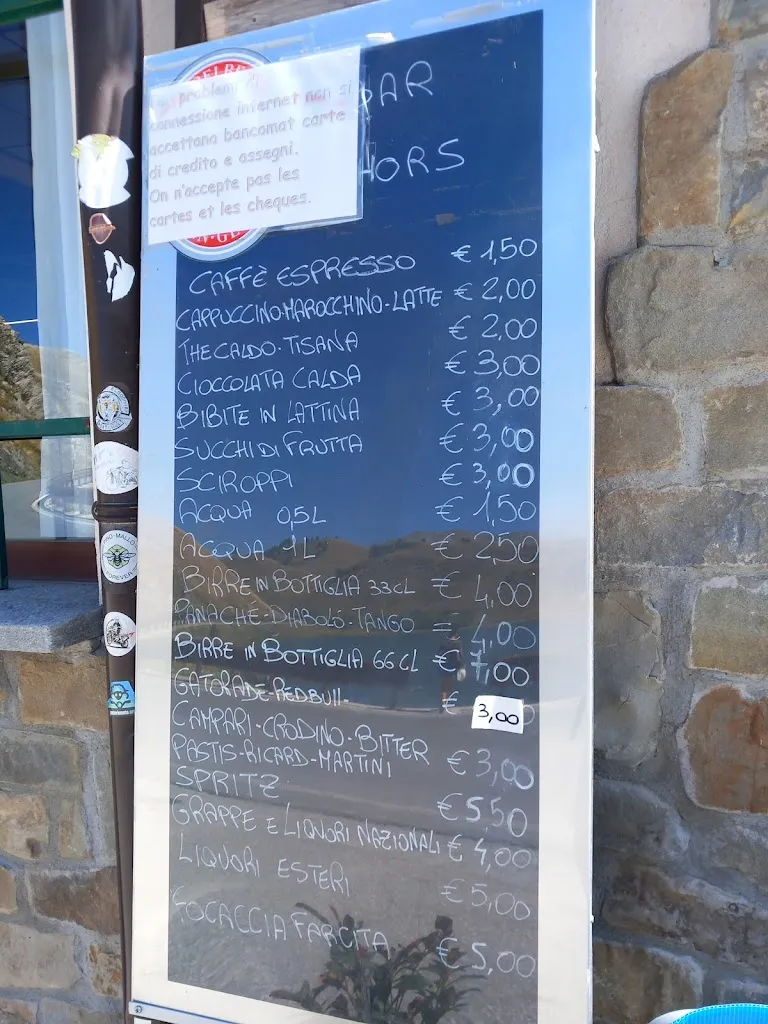 BAR
HORS
problemi di
connessione internet non si
accettano bancomat carte
di credito e assegni.
On n'accepte pas les
cartes et les cheques.
CAFFÈ ESPRESSO € 1,50
CAPPUCCINO-MAROCCHINO-LATTE € 2,00
THE CALDO-TISANA € 2,00
CIOCCOLATA CALDA € 3,00
BIBITE IN LATTINA € 3,00
SUCCHI DI FRUTTA € 3,00
SCIROPPI € 3,00
ACQUA 0,5L € 1,50
ACQUA 1L € 2,50
BIRRE IN BOTTIGLIA 33CL € 4,00
PANACHÉ-DIABOLÓ-TANGO = 4,00
BIRRE IN BOTTIGLIA 66CL € 7,00
GATORADE-REDBULL- € 3,00
CAMPARI-CRODINO-BITTER
PASTIS-RICARD-MARTINI € 3,00
SPRITZ € 5,50
GRAPPE E LIQUORI NAZIONALI € 4,00
LIQUORI ESTERI € 5,00
FOCACCIA FARCITA € 5,00
FOREVER